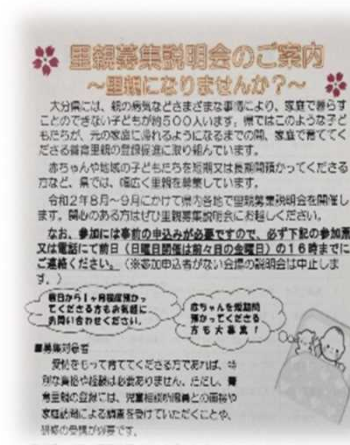 里親募集説明会のご案内
～里親になりませんか？～
大分県には、親の病気などさまざまな事情により、家庭で暮らす
ことのできない子どもが約５００人います。県ではこのような子ど
もたちが、元の家庭に帰れるようになるまでの間、家庭で育ててく
ださる養育里親の登録促進に取り組んでいます。
赤ちゃんや地域の子どもたちを短期又は長期間預かってくださる
方など、県では、幅広く里親を募集しています。
令和２年８月～９月にかけて県内各地で里親募集説明会を開催し
ます。関心のある方はぜひ里親募集説明会にお越しください。
なお、参加には事前の申込みが必要ですので、必ず下記の参加票
又は電話にて前日（日曜日開催は前々日の金曜日）の１６時までに
ご連絡ください。（※参加申込者がない会場の説明会は中止しま
す。）
数日から１ヶ月程度預かっ
てくださる方もお気軽に
お問い合わせください。
赤ちゃんを短期間
預かってくださる
方も大募集！
■募集対象者
愛情をもって育ててくださる方であれば、特
別な資格や経験は必要ありません。ただし、養
育里親の登録には、児童相談所職員との面接や
家庭訪問による調査を受けていただくことや、
研修の受講が必要です。